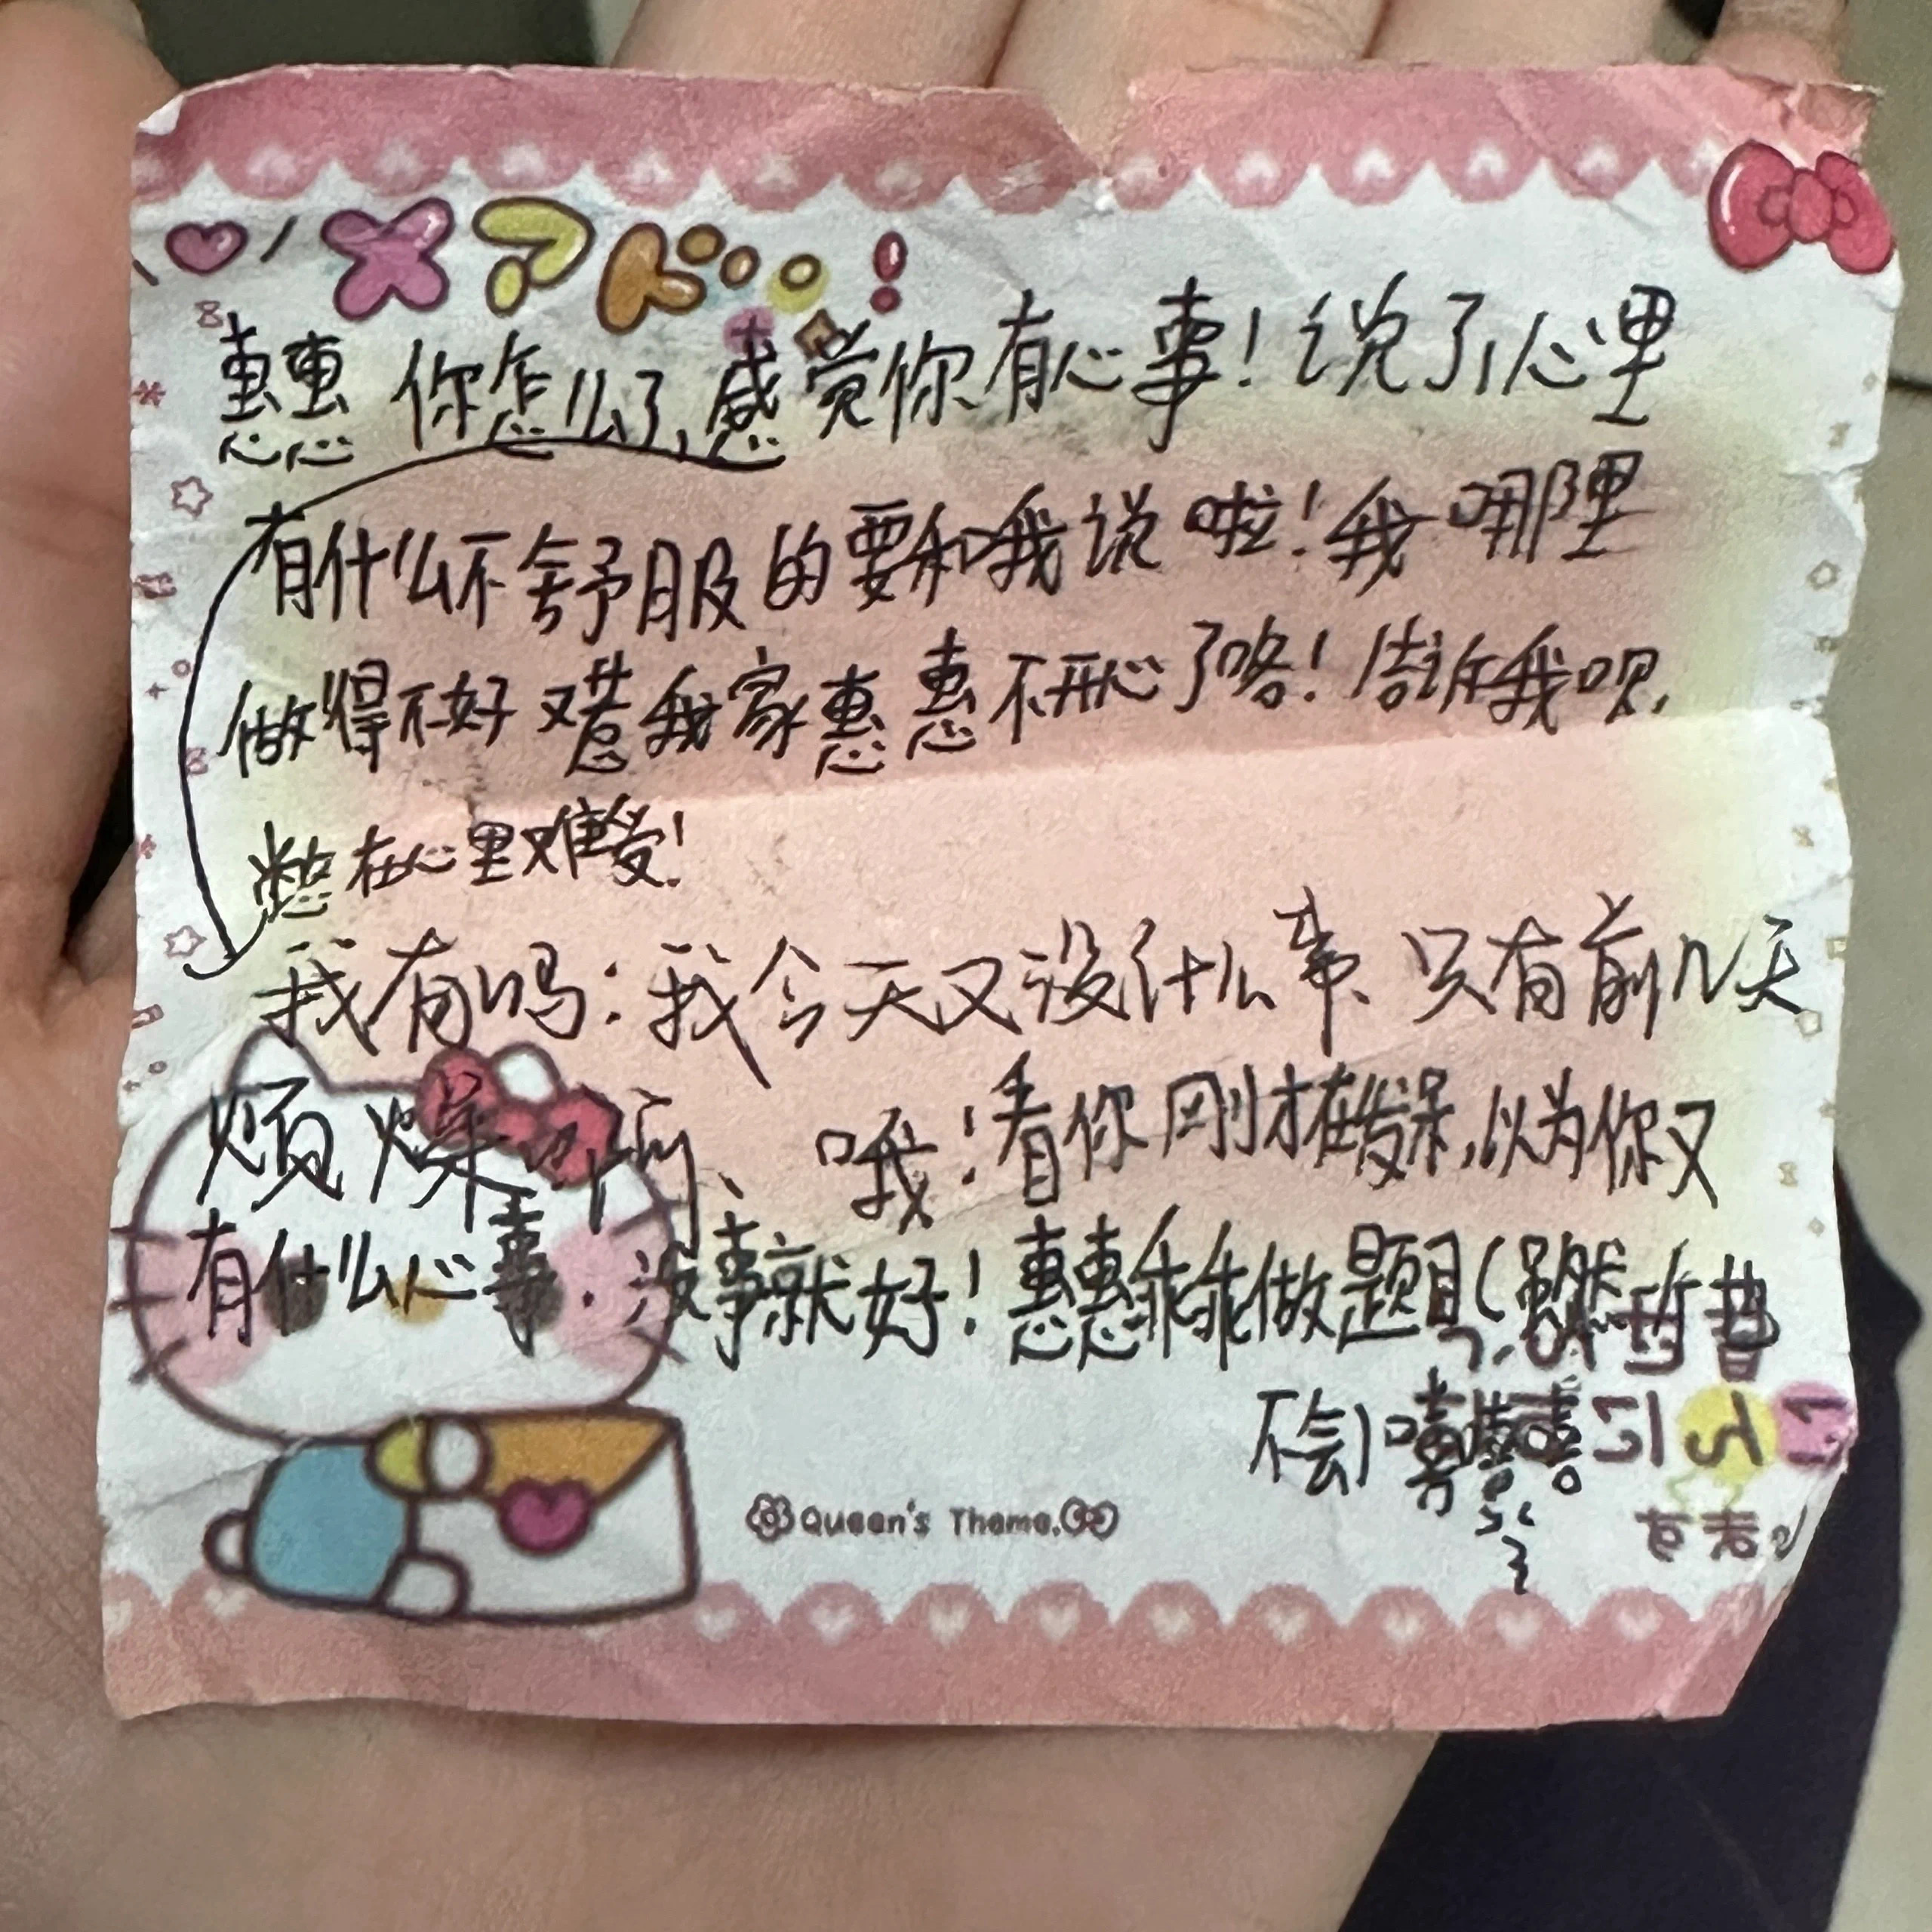 メアド!
惠惠 你怎么了,感觉你有心事!说了,心里
有什么不舒服的要和我说啦!我哪里
做得不好又惹我家惠惠不开心了咯!告诉我呗,
憋在心里难受!
我有吗:我今天又没什么事、只有前几天
烦燥 啊、哦!看你刚才在发呆,以为你又
有什么心事.没事就好!惠惠乖乖做题目(虽然 昔
不会)嘻嘻嘻
Queen's Theme.